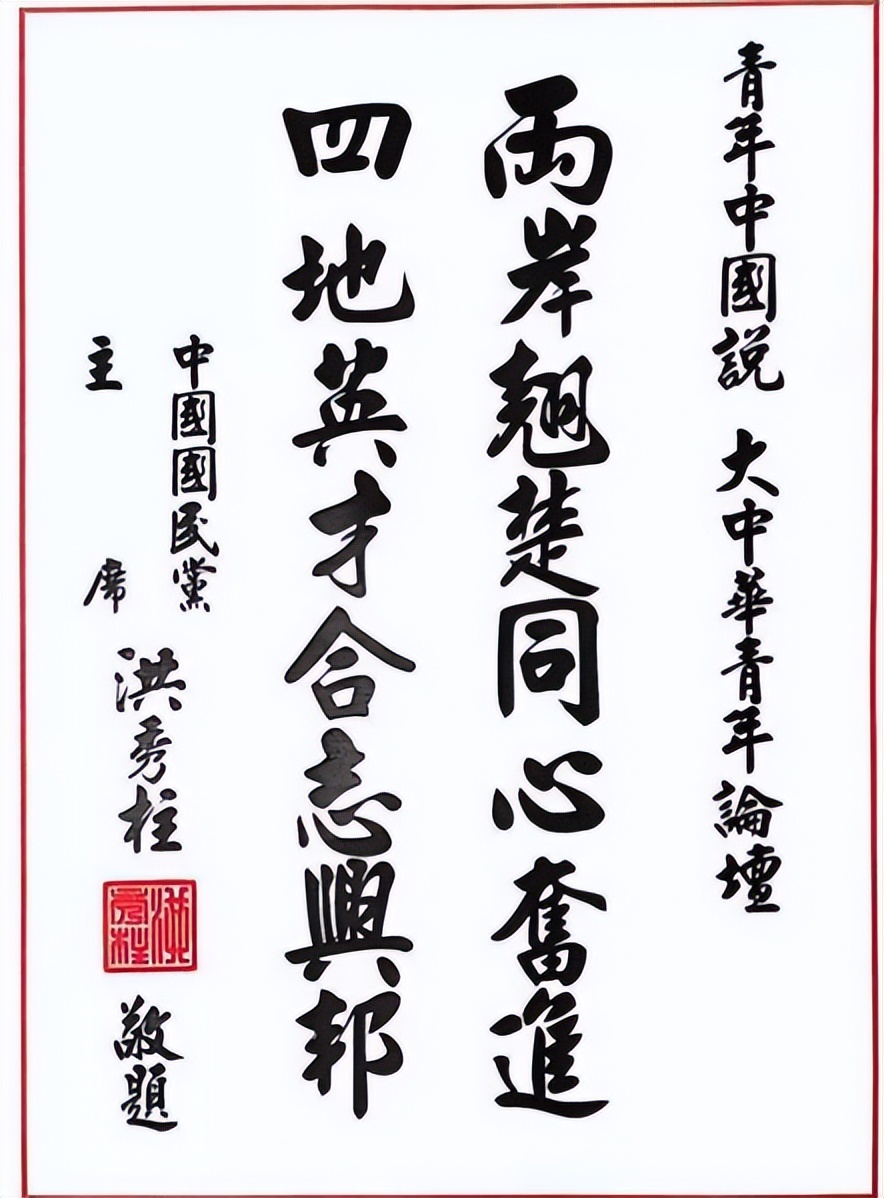 青年中國説 大中華青年論壇
兩岸翹楚同心奮進
四地英才合志興邦
中國國民黨
主席
洪秀柱
洪秀柱
敬題